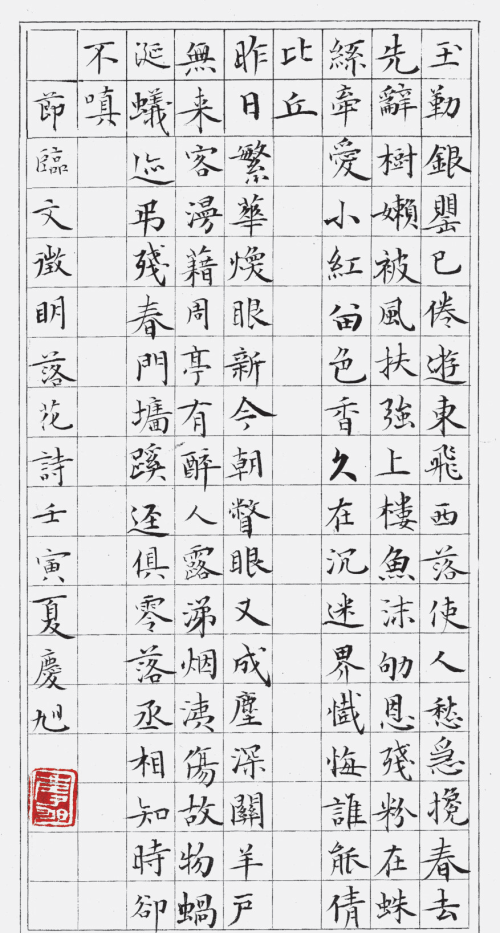 玉勒銀罌已倦遊東飛西落使人愁急攙春去
先辭樹嬾被風扶強上樓魚沫劬恩殘粉在蛛
絲牽愛小紅畱色香久在沉迷界懺悔誰能倩
比丘
昨日繁華煥眼新今朝瞥眼又成塵深關羊戶
無来客漫藉周亭有醉人露涕烟洟傷故物蝸
涎蟻迹弔殘春門墻蹊逕俱零落丞相知時卻
不嗔
節臨文徵明落花詩壬寅夏慶旭